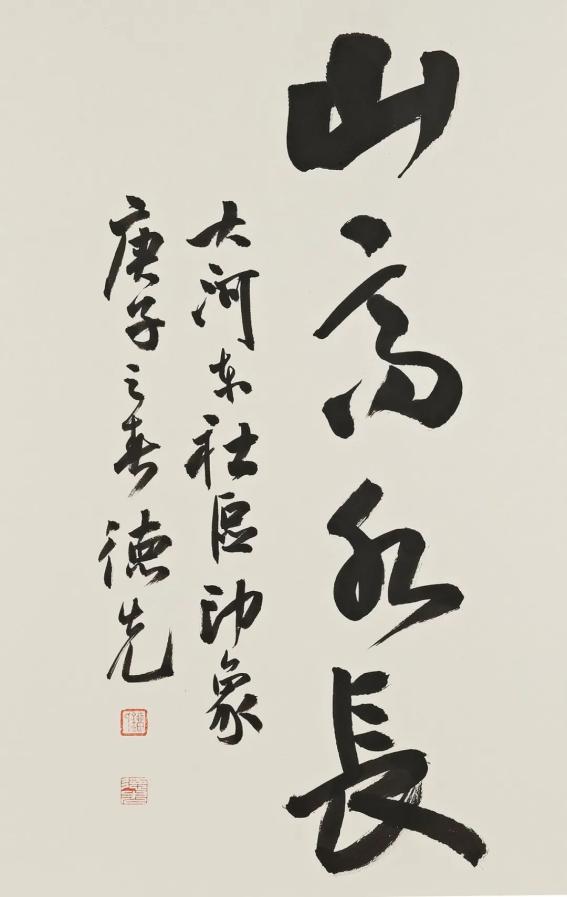 山高水長
大河东社區印象
庚子之春 德先